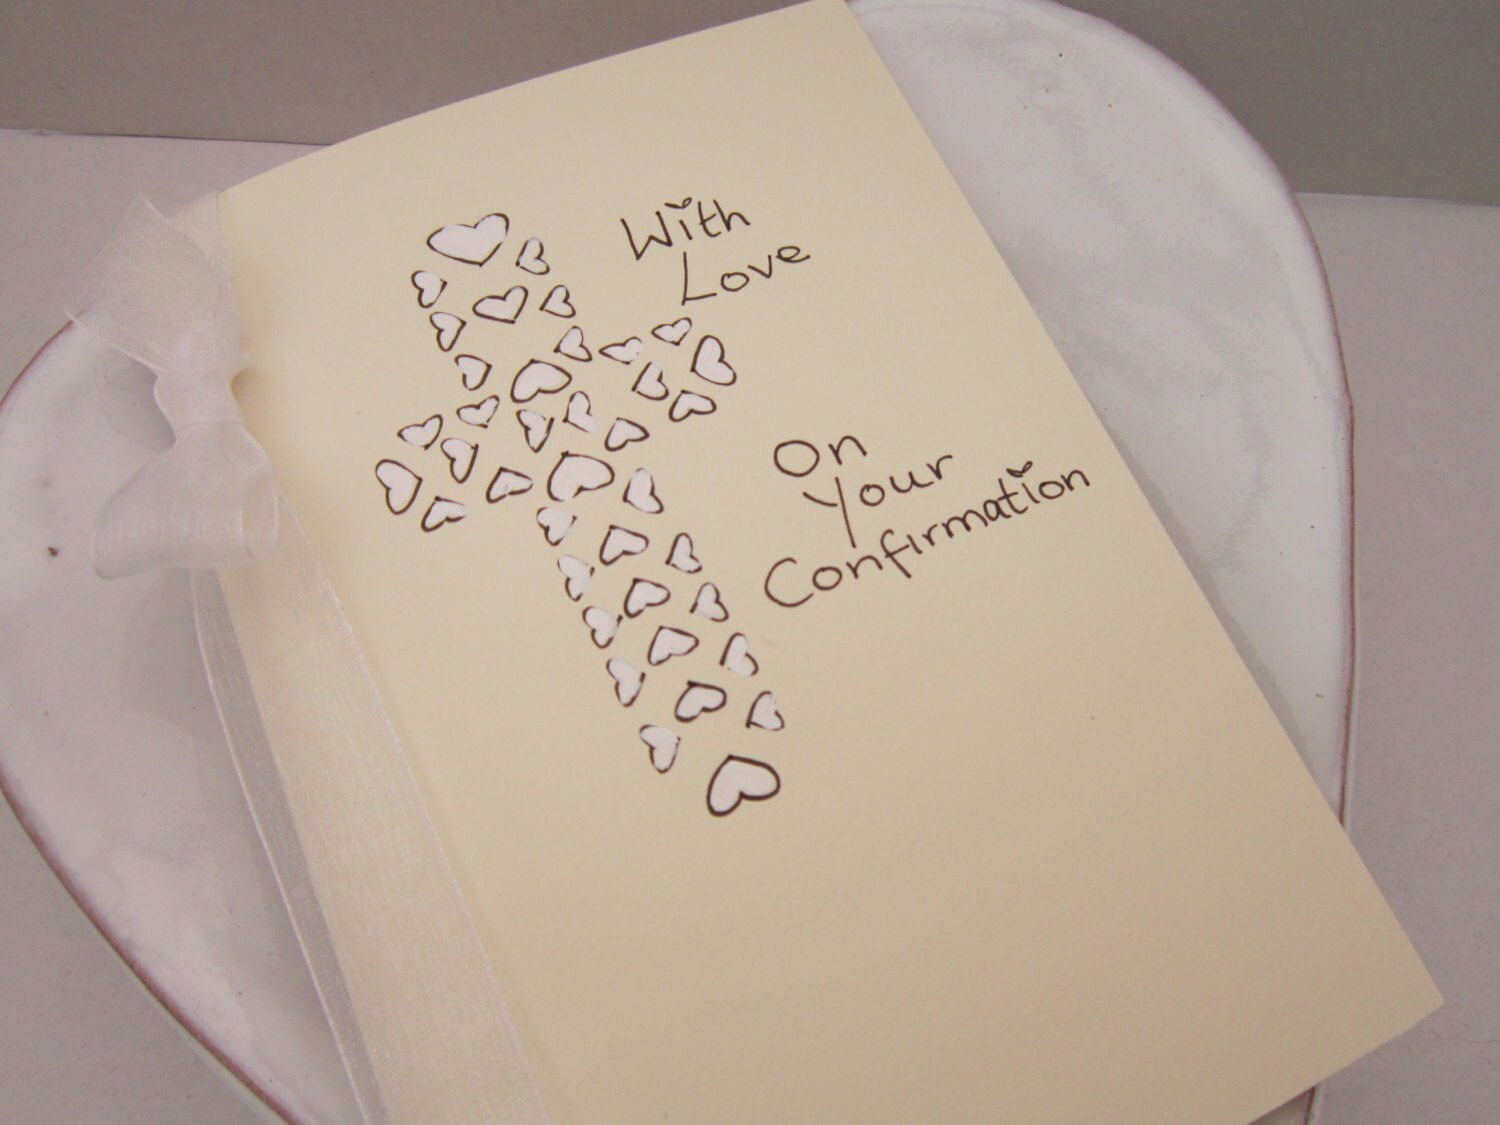 With
Love
On
Your
Confirmation